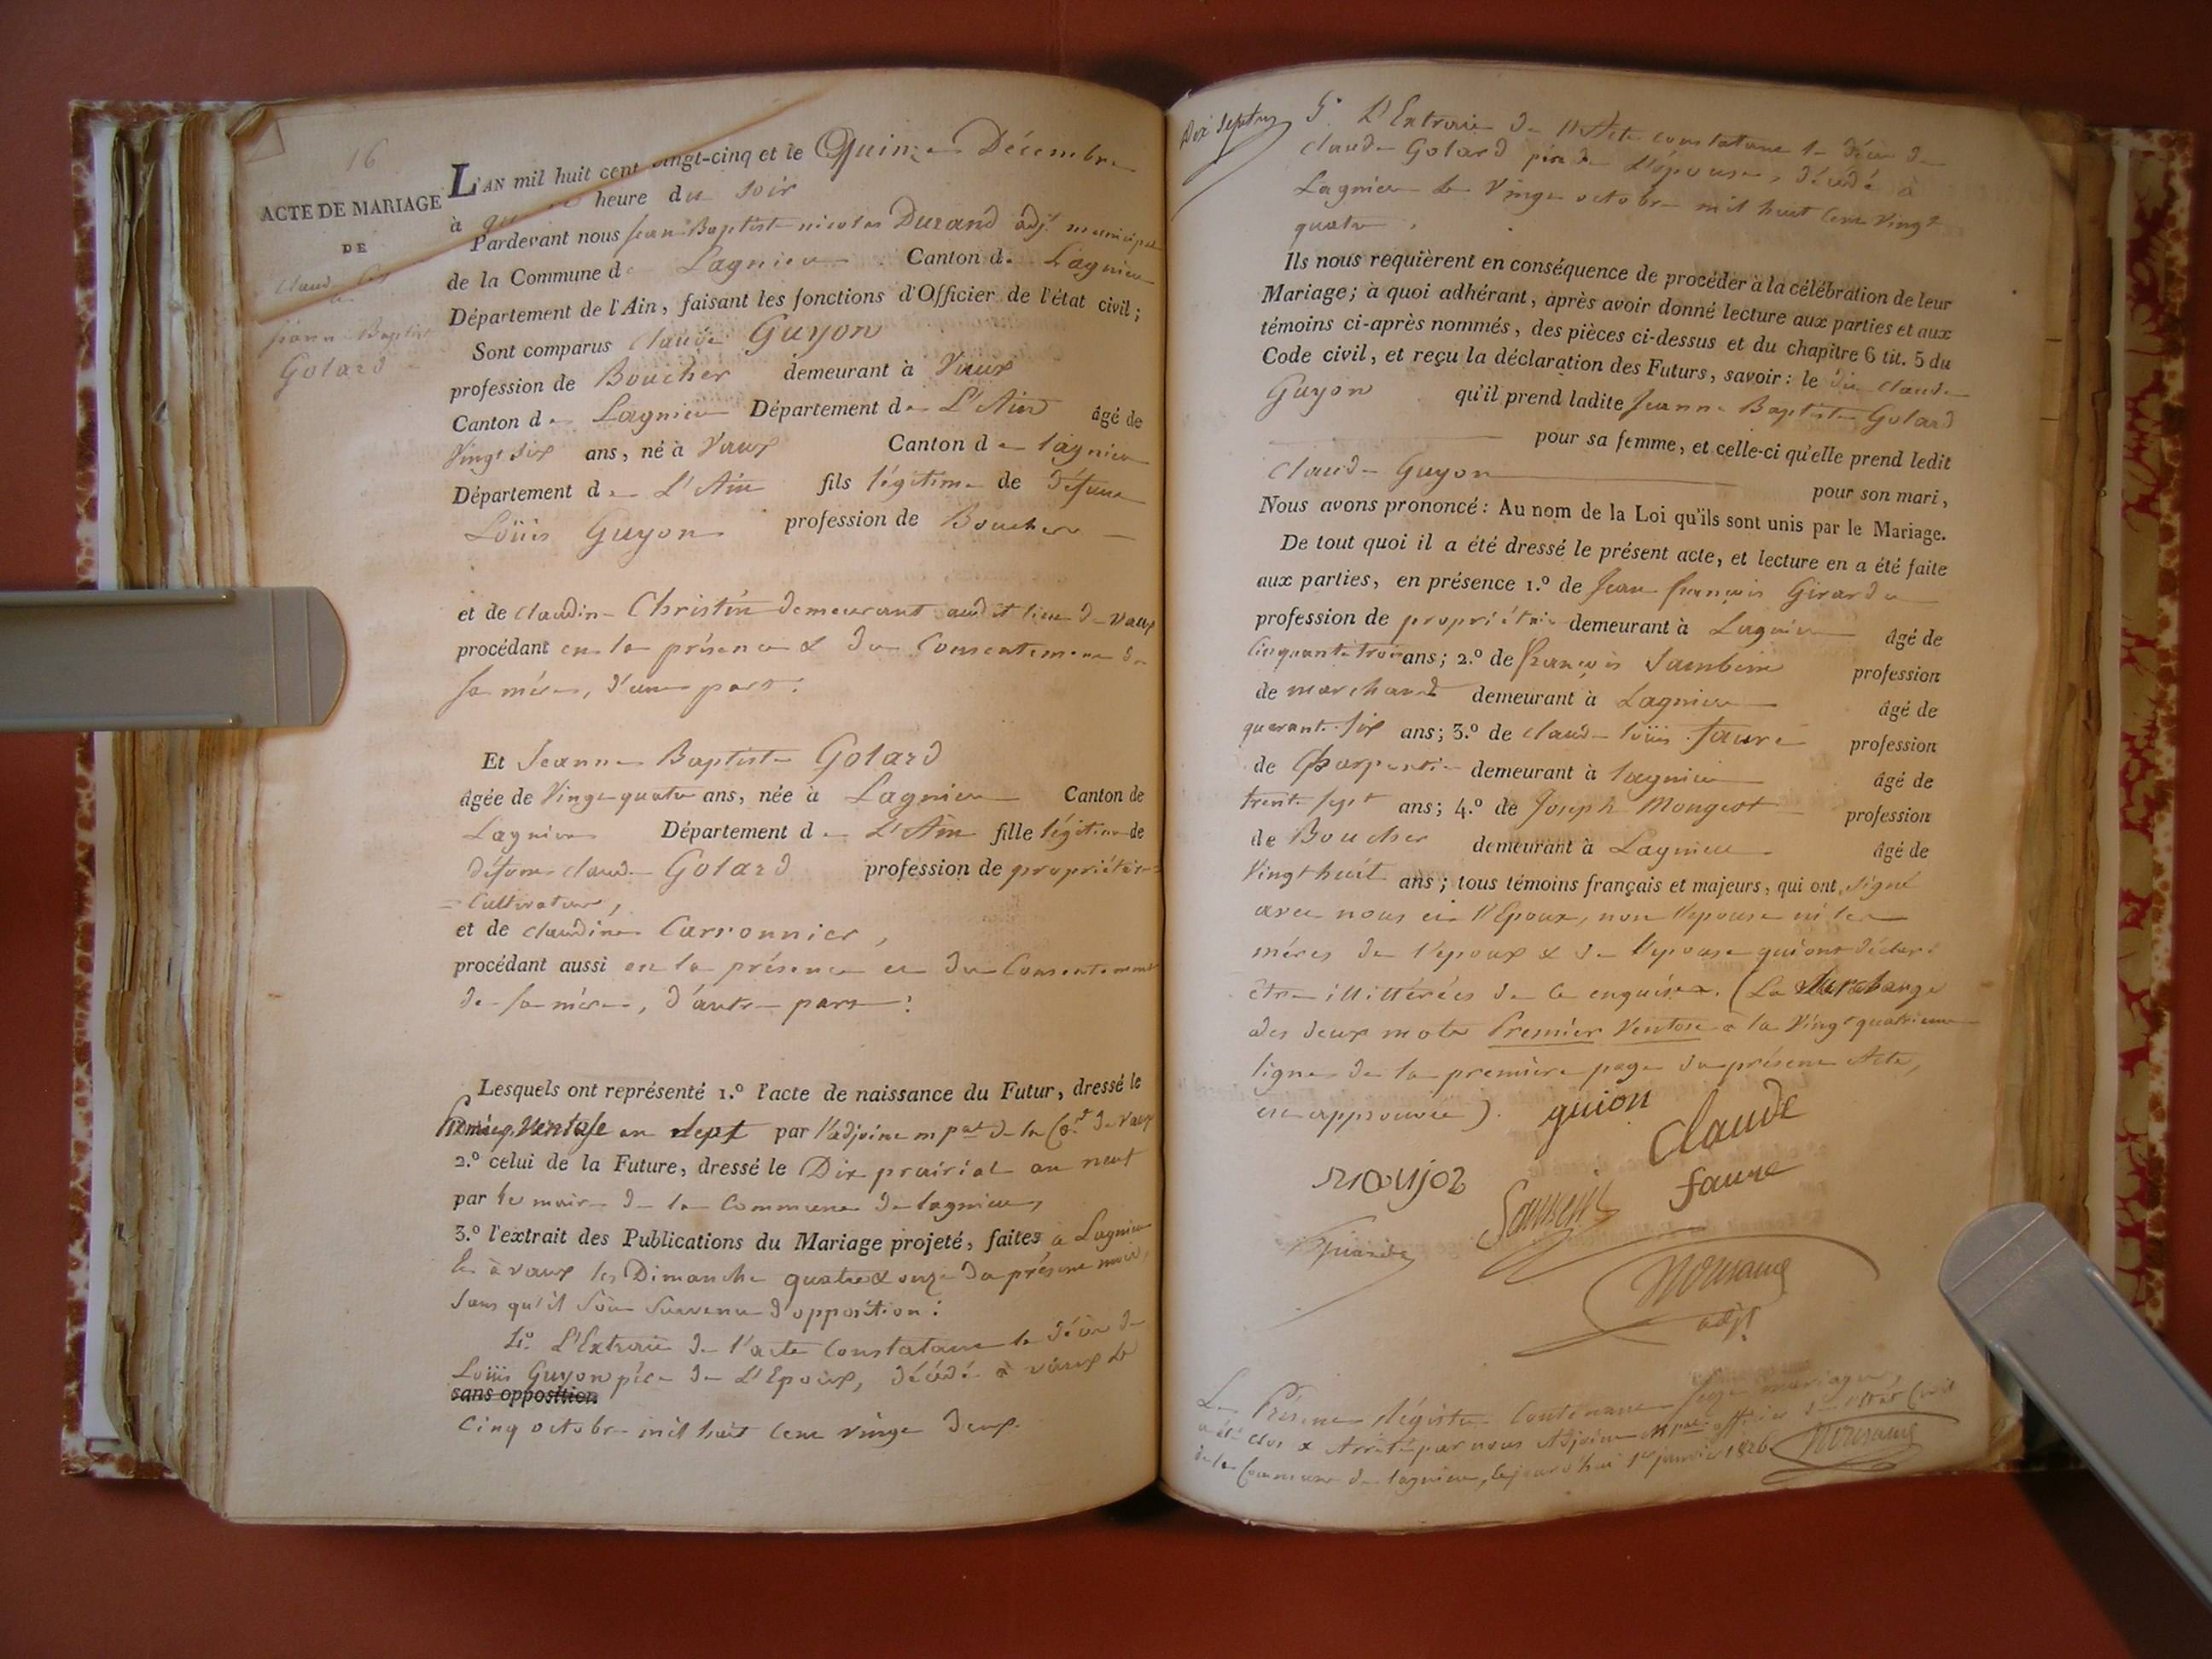 16
ACTE DE MARIAGE
DE
Jeanne Baptiste
Golard
L'AN mil huit cent vingt-cinq et le Quinze Décembre
à heure du soir
Pardevant nous Jean Baptiste nicolas Durand adjt municipal
de la Commune de Lagnieu Canton de Lagnieu
Département de l'Ain, faisant les fonctions d'Officier de l'état civil;
Sont comparus claude Guyon
profession de Boucher demeurant à Vaux
Canton de Lagnieu Département de L'Ain âgé de
Vingt six ans, né à Vaux Canton de lagnieu
Département de L'Ain fils légitime de défunt
Loüis Guyon profession de Boucher
et de claudine Christin demeurant audit lieu de vaux
procédant en la présence & du Consentement de
sa mère, d'une part.
Et Jeanne Baptiste Golard
âgée de Vingt quatre ans, née à Lagnieu Canton de
Lagnieu Département de L'Ain fille légitime de
défunt claude Golard profession de propriétaire
= Cultivateur,
et de claudine Carronnier,
procédant aussi en la présence et du Consentement
de sa mère, d'autre part:
Lesquels ont représenté 1.º l'acte de naissance du Futur, dressé le
Premier Ventose an sept par l'adjoint mpal de la Coe de vaux
2.º celui de la Future, dressé le Dix prairial an neuf
par le maire de la Commune de lagnieu,
3.º l'extrait des Publications du Mariage projeté, faites à Lagnieu
& à vaux les Dimanche quatre & onze du présent mois,
sans qu'il soit survenu d'opposition:
4º. L'Extrait de l'acte Constatant le décès de
Loüis Guyon père de L'Epoux, décédé à vaux le
sans opposition
Cinq octobre mil huit Cent vingt deux.
Dix Sept
5º. L'Extrait de l'Acte constatant le décès de
claude Golard père de L'épouse, décédé à
Lagnieu le Vingt octobre mil huit Cent Vingt
quatre.
Ils nous requièrent en conséquence de procéder à la célébration de leur
Mariage; à quoi adhérant, après avoir donné lecture aux parties et aux
témoins ci-après nommés, des pièces ci-dessus et du chapitre 6 tit. 5 du
Code civil, et reçu la déclaration des Futurs, savoir: le dit claude
Guyon qu'il prend ladite Jeanne Baptiste Golard
pour sa femme, et celle-ci qu'elle prend ledit
Claude Guyon pour son mari,
Nous avons prononcé: Au nom de la Loi qu'ils sont unis par le Mariage.
De tout quoi il a été dressé le présent acte, et lecture en a été faite
aux parties, en présence 1.º de Jean françois Girard
profession de propriétaire demeurant à Lagnieu âgé de
Cinquante trois ans; 2.º de françois profession
de marchand demeurant à Lagnieu âgé de
quarante six ans; 3.º de claude loüis faure profession
de Charpentier demeurant à lagnieu âgé de
trente sept ans; 4.º de Joseph Mongeot profession
de Boucher demeurant à Lagnieu âgé de
Vingt huit ans; tous témoins français et majeurs, qui ont signé
avec nous et l'Epoux, non l'epouse ni les
mères de l'epoux & de l'epouse qui ont déclaré
être illittérées de ce enquises. (La surcharge
des deux mots Premier Ventose à la Vingt quatrième
ligne de la première page du présent Acte,
est approuvée). guion
Claude
moujoz Sambein faure
Girard
Nˢ Durand
adjt
Le Présent Régistre Contenant seize mariages,
a été clos & Arrêté par nous Adjoint mpal officier de l'état Civil
de la Commune de lagnieu, cejourd'hui 1er janvier 1826.